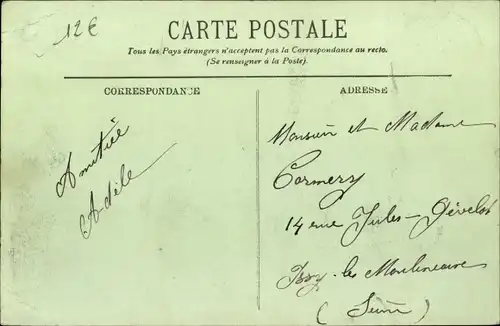 12€
CARTE POSTALE
Tous les Pays étrangers n'acceptent pas la Correspondance au recto.
(Se renseigner à la Poste).
CORRESPONDANCE
ADRESSE
Amitié
Adèle
Monsieur et Madame
Cormery
14 rue Jules-Gévelot
Issy-les Moulineaux
(Seine)